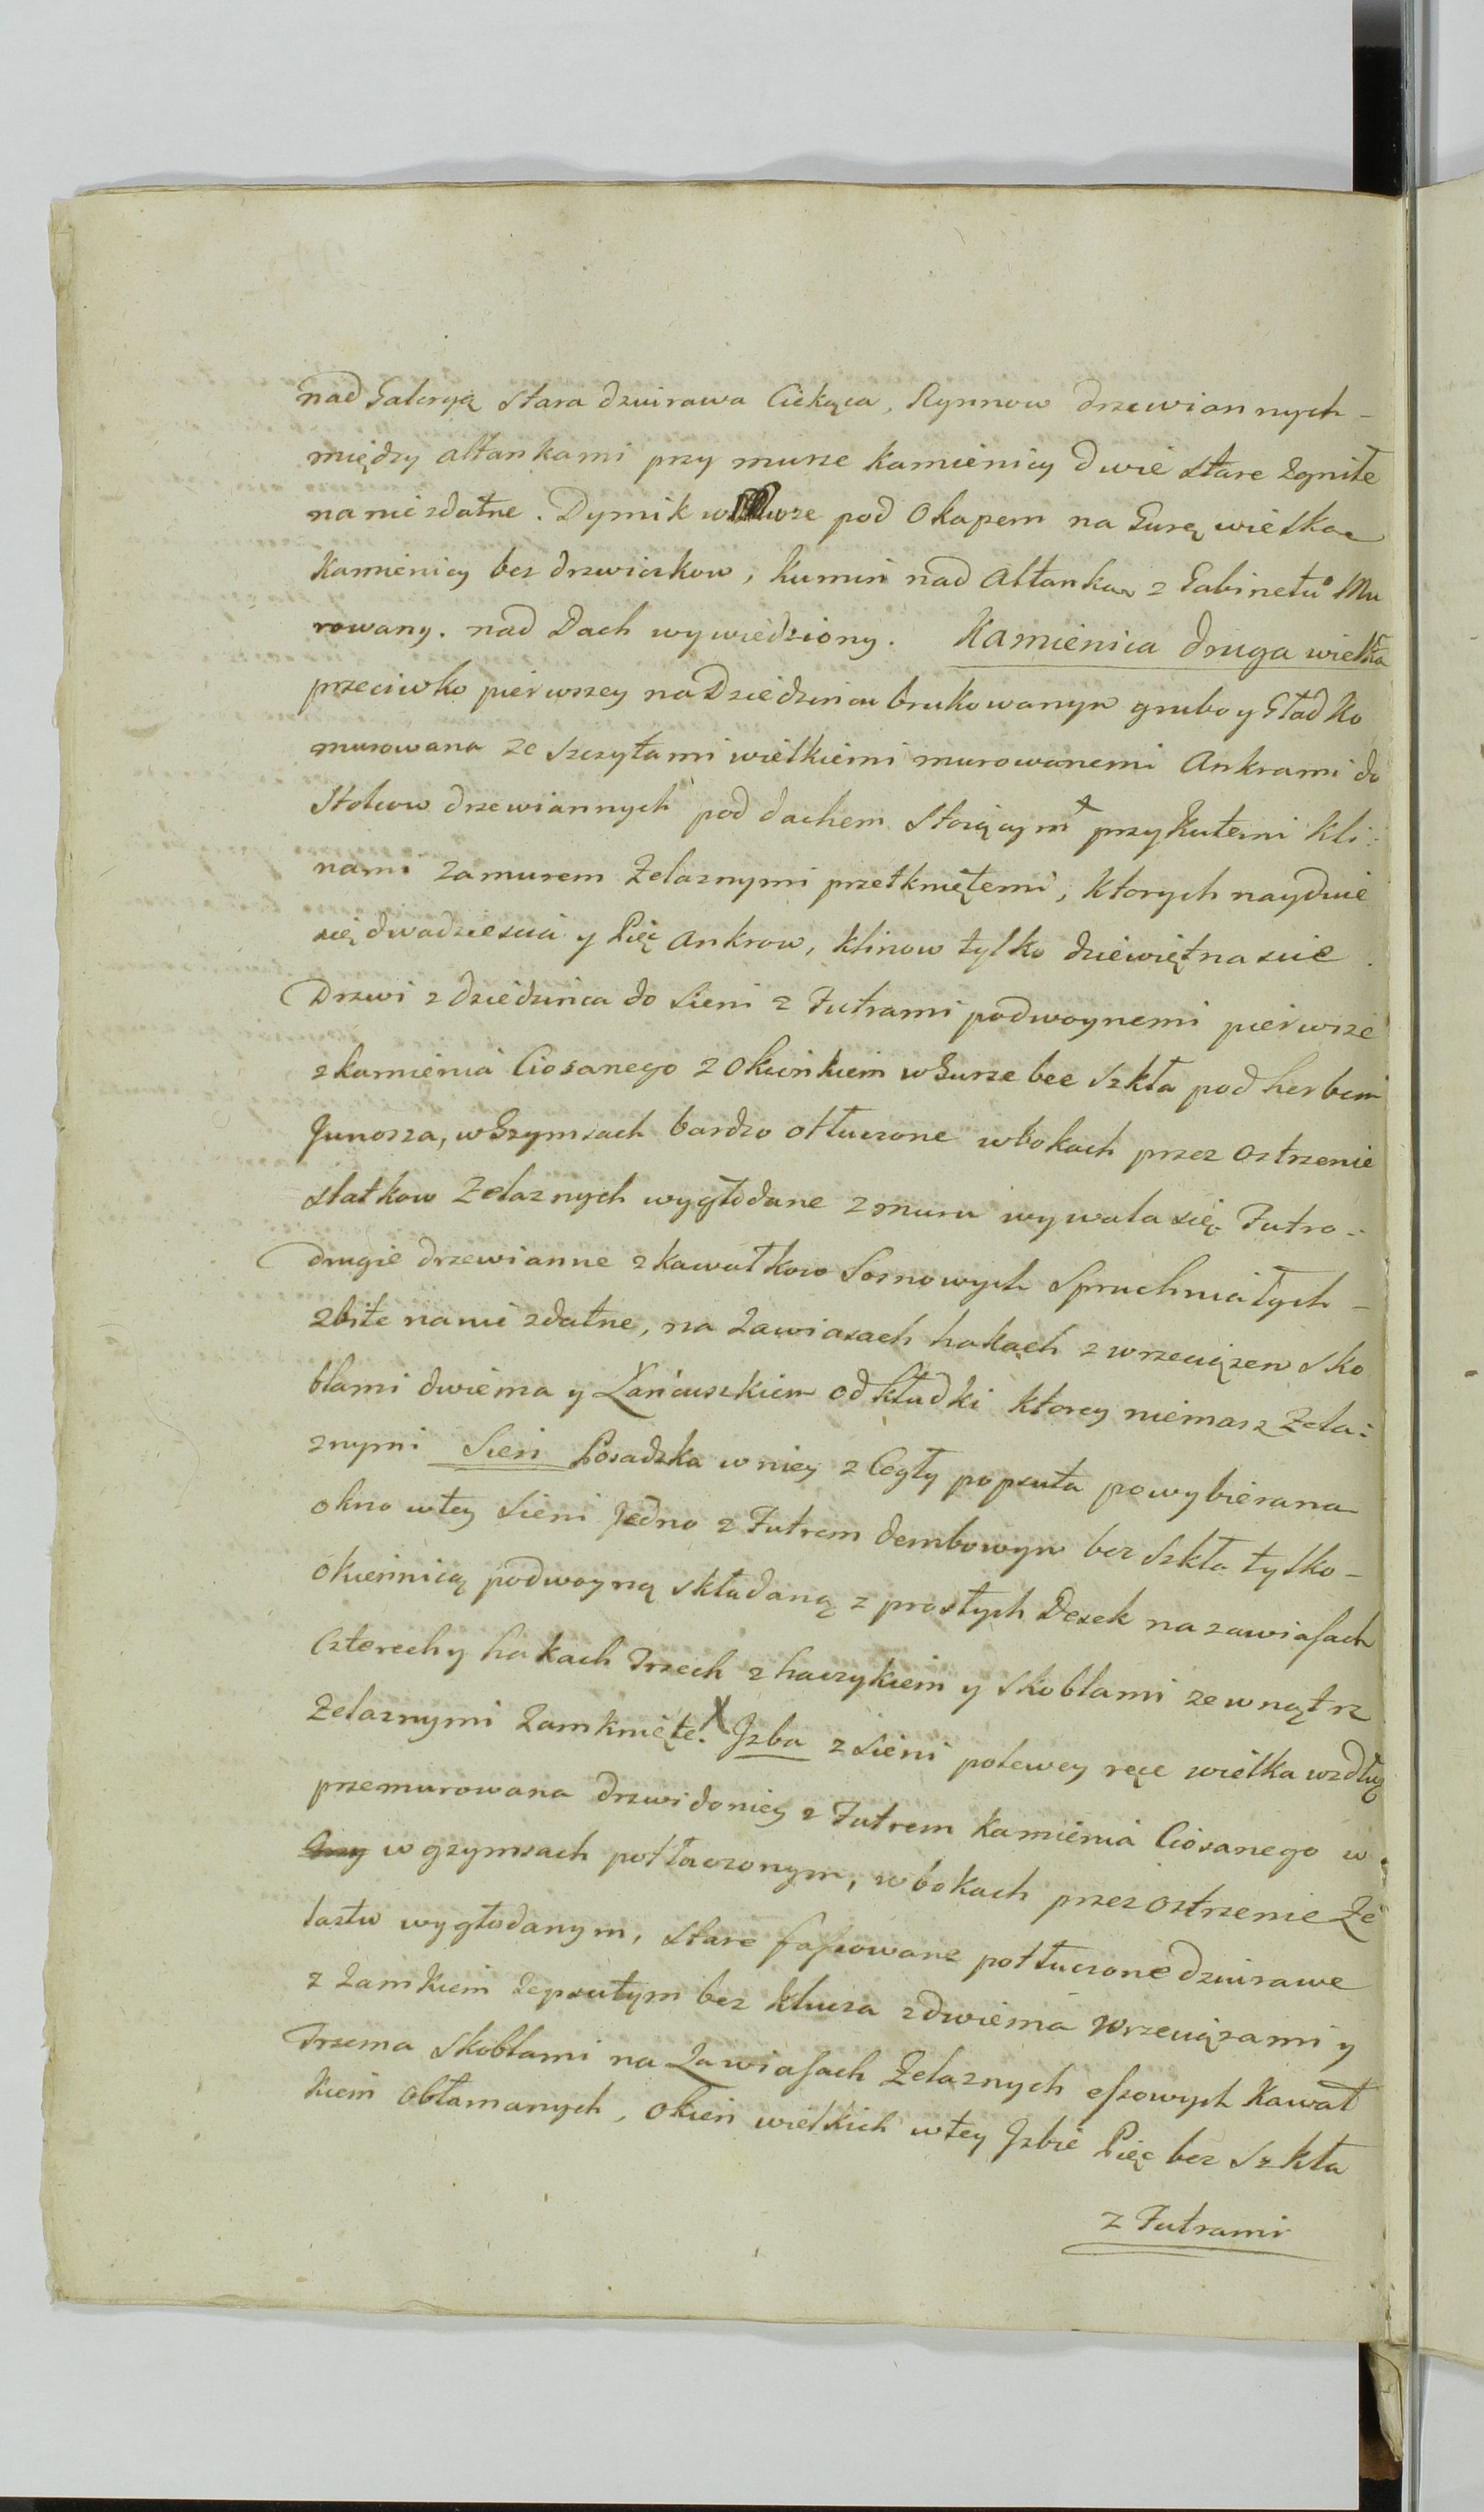 nad Galeryą stara dziurawa Ciekąca, Rynnow drzewiannych -
między altankami przy murze kamienicy dwie stare zgniłe
na nic zdatne. Dymik w murze pod Okapem na Gurę wielką
Kamienicy bez drzwiczkow, kumin nad Altanką z Gabinetu Mu
rowany. nad Dach wywiedziony. Kamienica druga wielka
przeciwko pierwszey na Dziedzincu brukowanym grubo y Gładko
murowana ze szczytami wielkiemi murowanemi Ankrami do
Stolcow drzewiannych pod dachem stoiącym przykutemi kli:
nami za murem żelaznymi przetkniętemi, ktorych nayduie
się dwadziescia y Pięc ankrow, klinow tylko dziewiętnascie.
Drzwi z dziedzinca do sieni z Futrami podwoynemi pierwsze
z kamienia Ciosanego z Okienkiem w Gurze bez szkła pod herbem
Junosza, w Gzymsach bardzo otłuczone w bokach przez ostrzenie
statkow żelaznych wygłodane z muru wywala się. Futro -
drugie drzewianne z kawałkow Sosnowych Spruchniałych -
zbite na nic zdatne, na zawiasach hakach z wrzeciązem sko
blami dwiema y Łańcuszkiem od kłudki ktorey niemasz żela:
znymi Sien Posadzka w niey z Cegły popsuta powybierana
okno w tey sieni Jedno z Futrem dembowym bez szkła tylko -
okiennicą podwoyną składaną z prostych Desek na zawiasach
Czterech y hakach Trzech z haczykiem y skoblami zewnątrz
żelaznymi zamknięte. X Jzba z sieni po lewey ręce wielka wzdłuż
przemurowana drzwi do niey z Futrem kamienia Ciosanego w
w gzymsach potłuczonym, w bokach przez ostrzenie Że
lastw wygłodanym, stare fasowane potłuczone dziurawe
z zamkiem zepsutym bez klucza z dwiema wrzeciązami y
Trzema skoblami na zawiasach żelaznych essowych kawał
kiem obłamanych, okien wielkich w tey Jzbie Pięc bez szkła
z Futrami